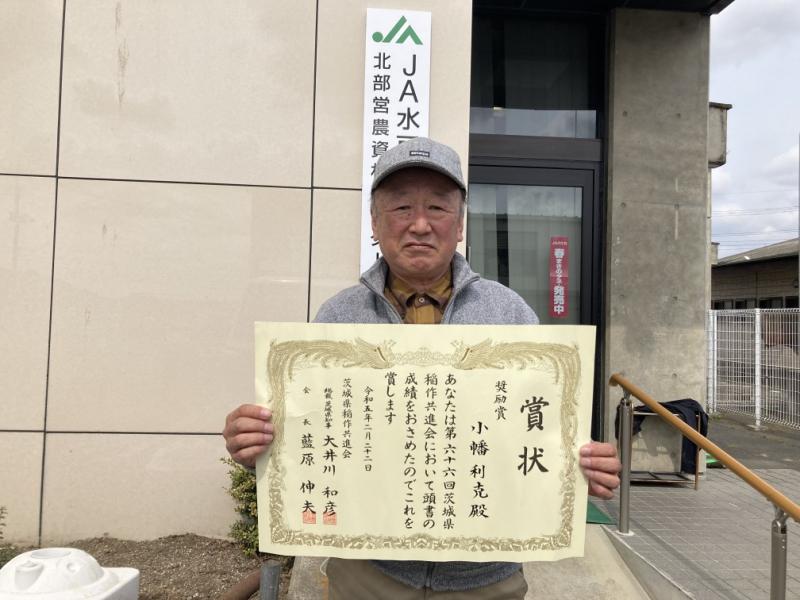 JA
JA水
北部営農資材
春まきのタネ
発売中
賞状
奨励賞
小幡利克殿
あなたは第六十六回茨城県
稲作共進会において頭書の
成績をおさめたのでこれを
賞します
令和五年二月二十二日
茨城県稲作共進会
総裁 茨城県知事 大井川和彦
会長 藍原伸夫